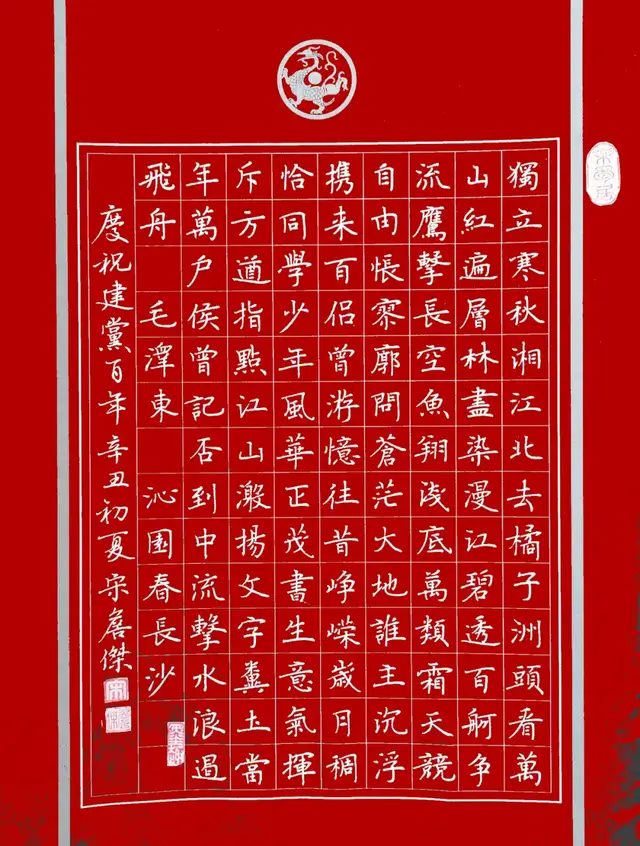 獨立寒秋湘江北去橘子洲頭看萬
山紅遍層林盡染漫江碧透百舸争
流鷹擊長空魚翔浅底萬類霜天競
自由悵寥廓問蒼茫大地誰主沉浮
携来百侣曾游憶往昔峥嵘歲月稠
恰同學少年風華正茂書生意氣揮
斥方遒指點江山激揚文字糞土當
年萬户侯曾記否到中流擊水浪遏
飛舟 毛澤東 沁園春長沙
慶祝建黨百年 辛丑初夏宋詹傑